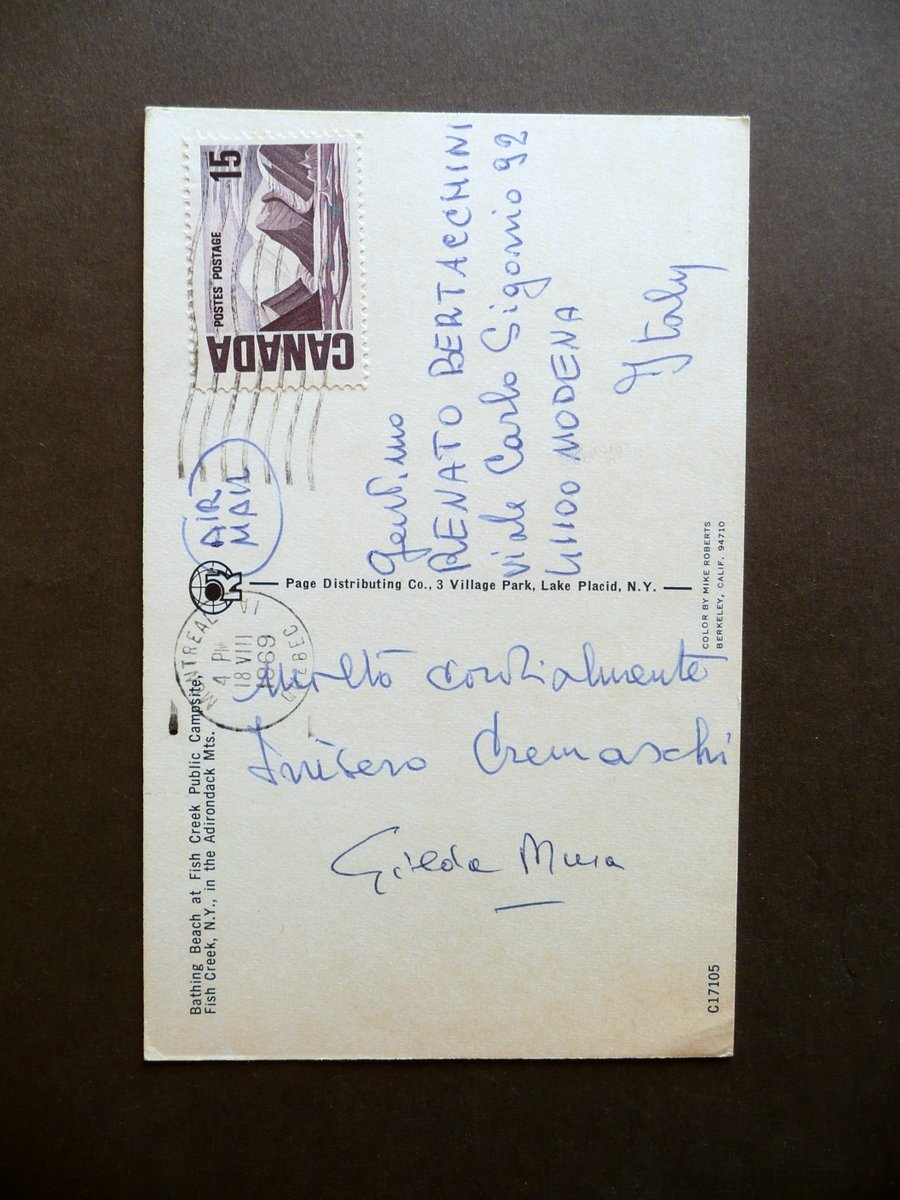 Bathing Beach at Fish Creek Public Campsite,
Fish Creek, N.Y., in the Adirondack Mts.
molto cordialmente
Inìsero Cremaschi
Gilda Musa
C17105
Page Distributing Co., 3 Village Park, Lake Placid, N.Y.
COLOR BY MIKE ROBERTS
BERKELEY, CALIF. 94710
MONTREAL
4 PM
18 VIII
1969
QUEBEC
AIR
MAIL
CANADA
POSTES POSTAGE
15
Gent.mo
RENATO BERTACCHINI
Viale Carlo Sigonio 92
41100 MODENA
Italy